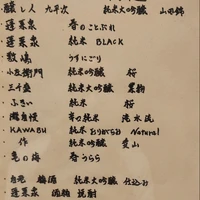 醸し人 九平次 純米大吟醸 山田錦
蓬莱泉 春のことぶれ
蓬莱泉 純米 BLACK
敷嶋 うすにごり
小左衛門 純米大吟醸 桜
三千盛 純米大吟醸
ふさい 純米 桜
隨自慢 純米 滝水流
KAWABU 純米 おりがらみ Natural
作 純米大吟醸
亀の海 春うらら
白老 梅酒 純米大吟醸 仕込み
蓬莱泉 酒粕 焼酎